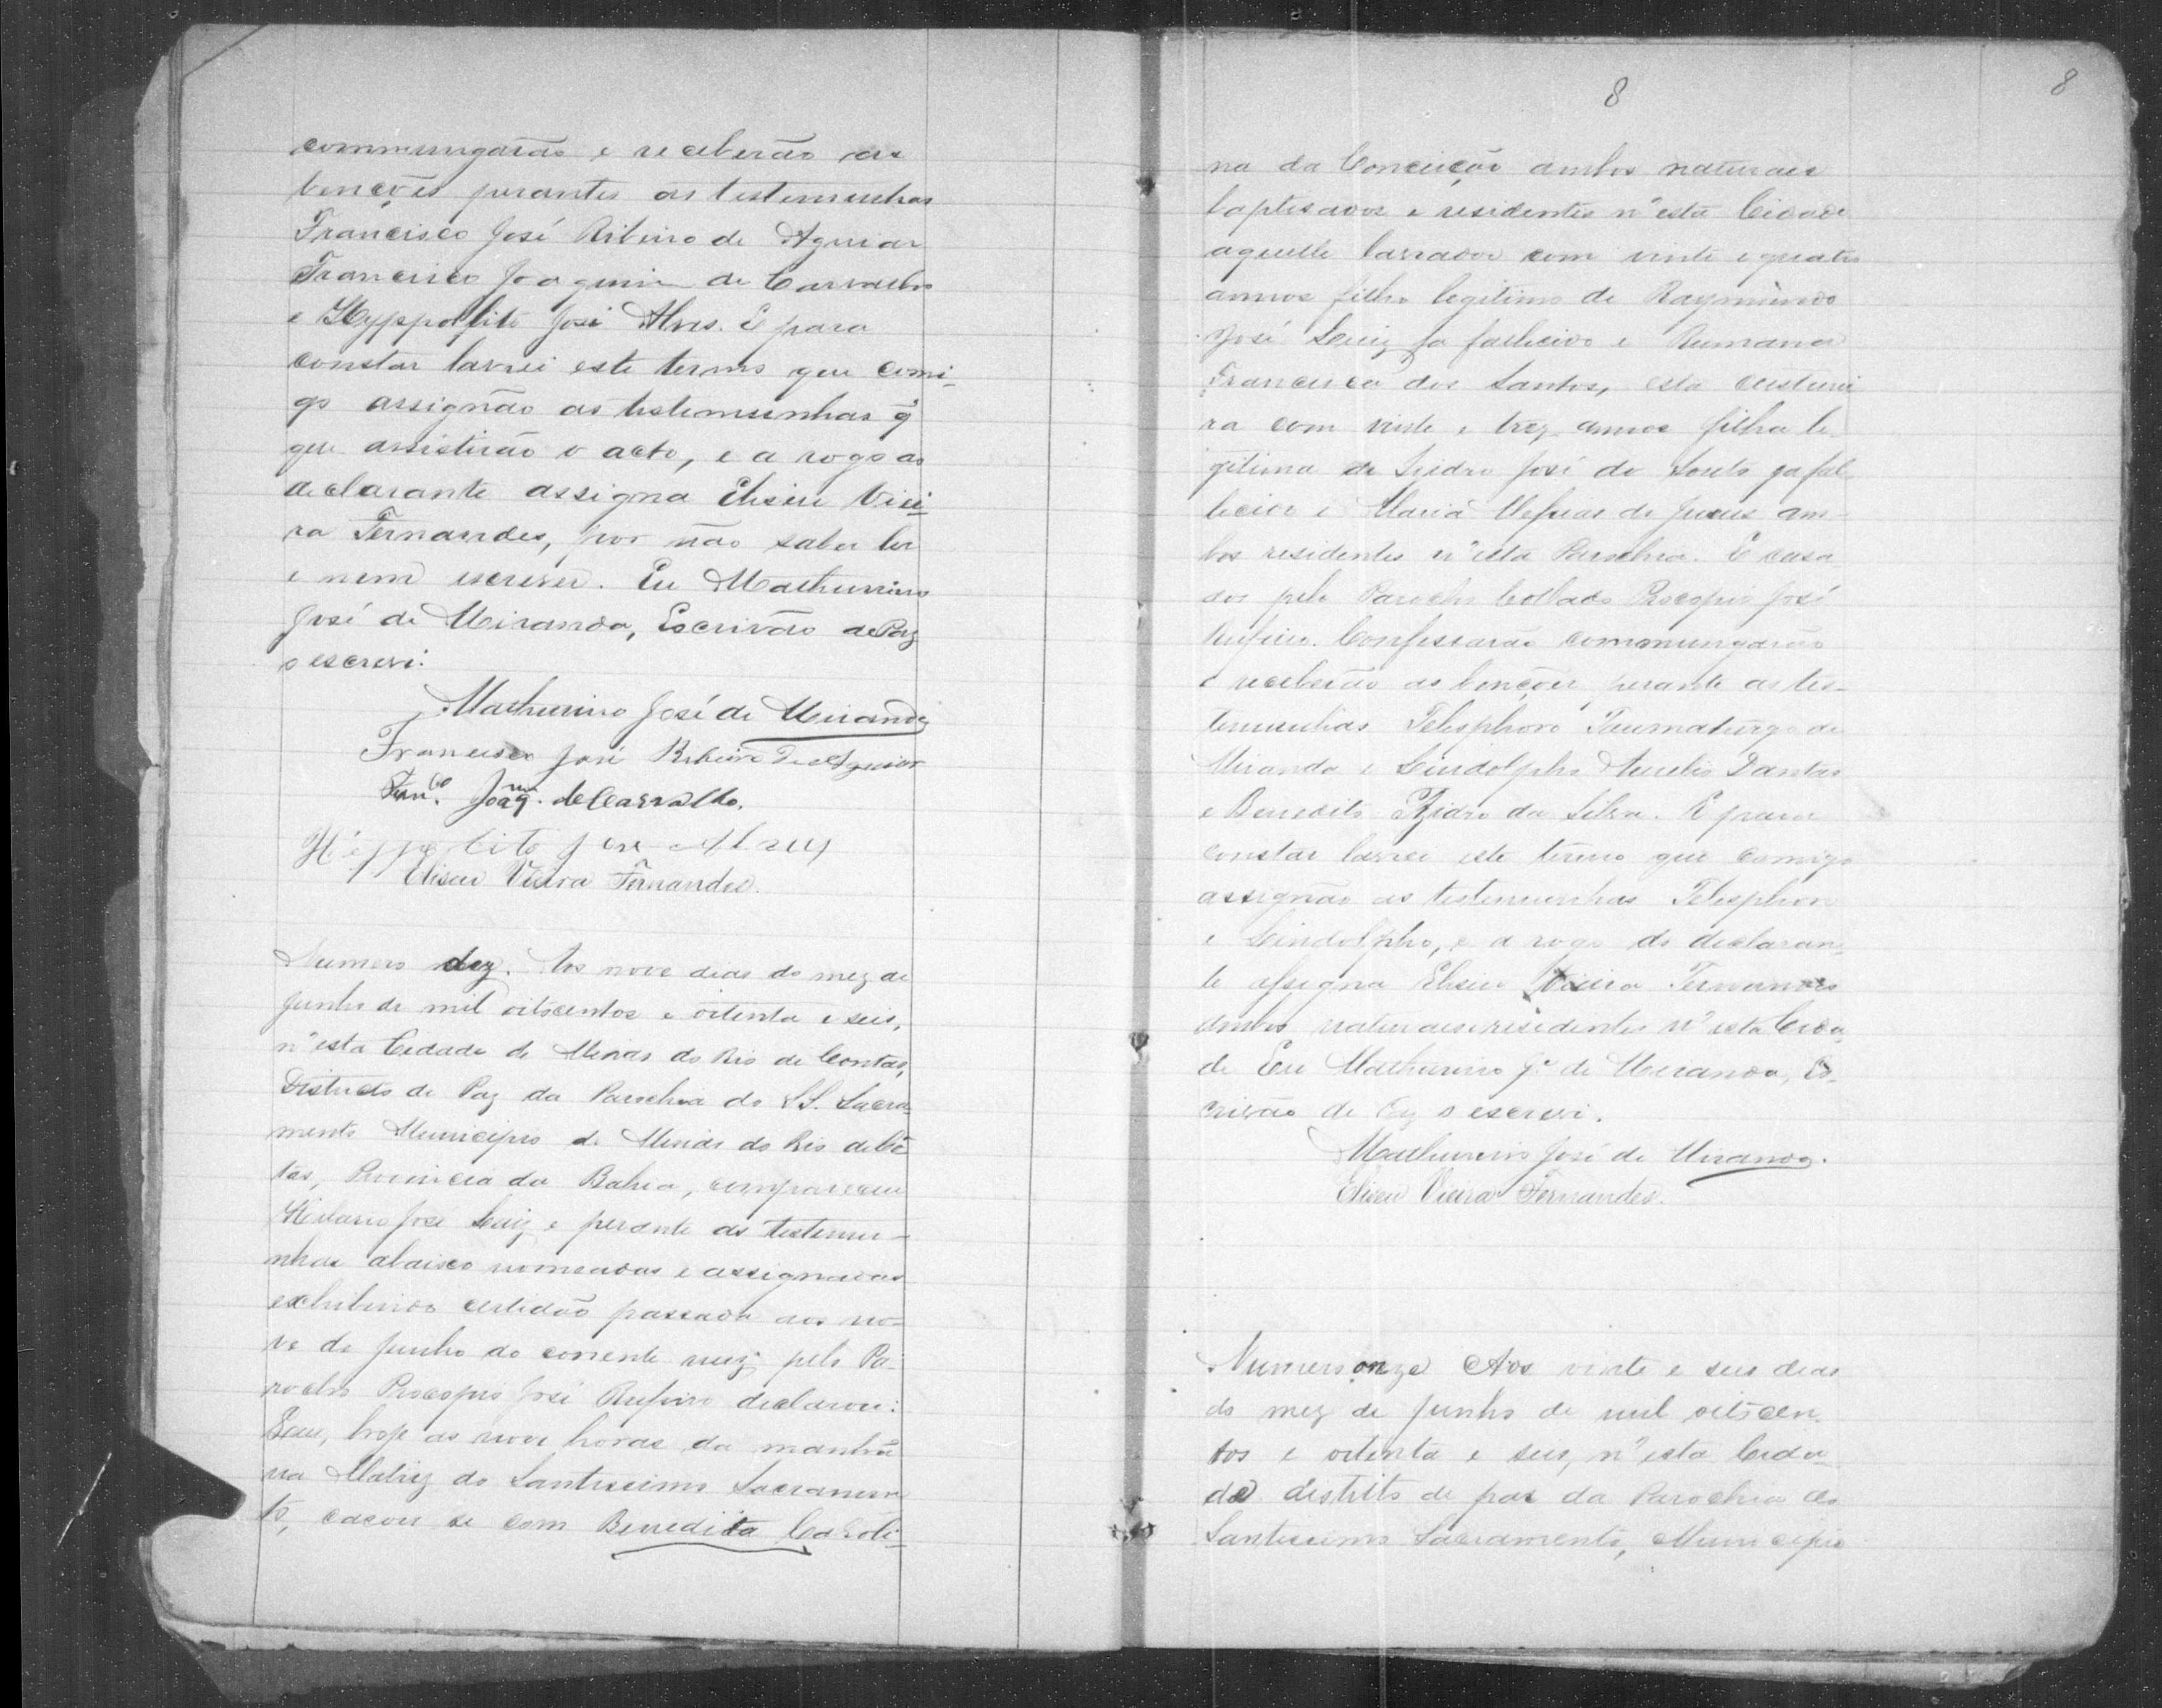 commungarão e receberão as
bençōes perantes as testemunhas
Francisco José Ribeiro de Aguiar
Francisco Joaquim de Carvalho
e Hyppolito José Alves. E para
constar lavrei este termo que comi-
go assignão as testemunhas q̃
que assistirão o acto, e a rogo do
declarante assigna Eliseu Viei-
ra Fernandes, por não saber ler
e nem escrever. Eu Mathurino
José de Miranda, Escrivão de Paz
o escrevi.
Mathurino José de Miranda
Francisco José Ribeiro de Aguiar
Fran.co Joaq.m de Carvalho.
Hippolito Jose Alves
Eliseu Vieira Fernandes.
Numero dez. Aos nove dias do mez de
Junho de mil oitocentos e oitenta e seis,
n'esta Cidade de Minas do Rio de Contas,
Districto de Paz da Parochia do S.S. Sacra-
mento Municipio de Minas do Rio de Cõ
tas, Provincia da Bahia, compareceu
Hilario José Luiz e perante as testemu-
nhas abaixo nomeadas e assignadas
exhibindo certidão passada aos no-
ve de Junho do corrente mez pelo Pa-
rocho Procopio José Rufino declarou:
Que, hoje as nove horas da manhã
na Matriz do Santissimo Sacramen
to, casou se com Benedicta Caroli-
8
8
na da Conceição ambos naturaes
baptisados e residentes n'esta Cidade
aquelle lavrador com vinte e quatro
annos filho legitimo de Raymundo
José Luiz ja fallecido e Rumana
Francisca dos Santos, esta costurei
ra com vinte e trez annos filha le-
gitima de Isidro José do Souto ja fal
lecido e Maria de Jesus am-
bos residentes n'esta Parochia. E casa
dos pelo Parocho Collado Procopio José
Rufino. Confessarão commungarão
e receberão as bençoes perante as tes-
temunhas Telesphoro Taumaturgo de
Miranda e Lindolpho Aurelio Dantas
e Benedito Izidro da Silva. E para
constar lavrei este termo que comigo
assignão as testemunhas Telesphoro
e Lindolpho, e a rogo do declaran-
te assigna Eliseu Vieira Fernandes
ambos naturaes e residentes n'esta Cida-
de Eu Mathurino J.e de Miranda, Es-
crivão de Paz o escrevi.
Mathurino José de Miranda.
Eliseu Vieira Fernandes.
Numero onze Aos vinte e seis dias
do mez de Junho de mil oitocen
tos e oitenta e seis, n'esta Cida-
de distrito de paz da Parochia do
Santissimo Sacramento, Municipio